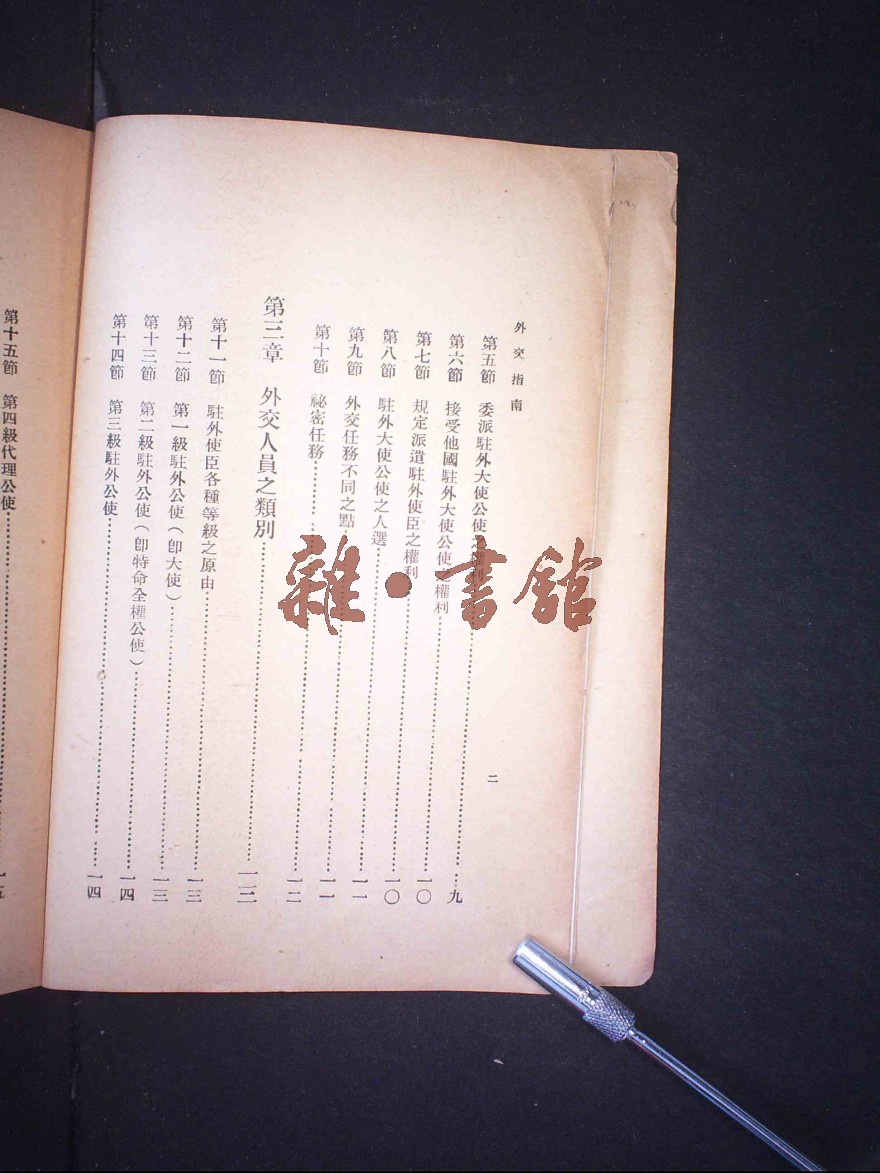 外交指南
二
第五節　委派駐外大使公使之權利……………………九
第六節　接受他國駐外大使公使之權利……………………一〇
第七節　規定派遣駐外使臣之權利……………………一〇
第八節　駐外大使公使之人選……………………一一
第九節　外交任務不同之點……………………一一
第十節　祕密任務……………………一二
第三章　外交人員之類別……………………一三
第十一節　駐外使臣各種等級之原由……………………一三
第十二節　第一級駐外公使（卽大使）……………………一三
第十三節　第二級駐外公使（卽特命全權公使）……………………一四
第十四節　第三級駐外公使……………………一四
第十五節　第四級代理公使……………………一五
雜·書館